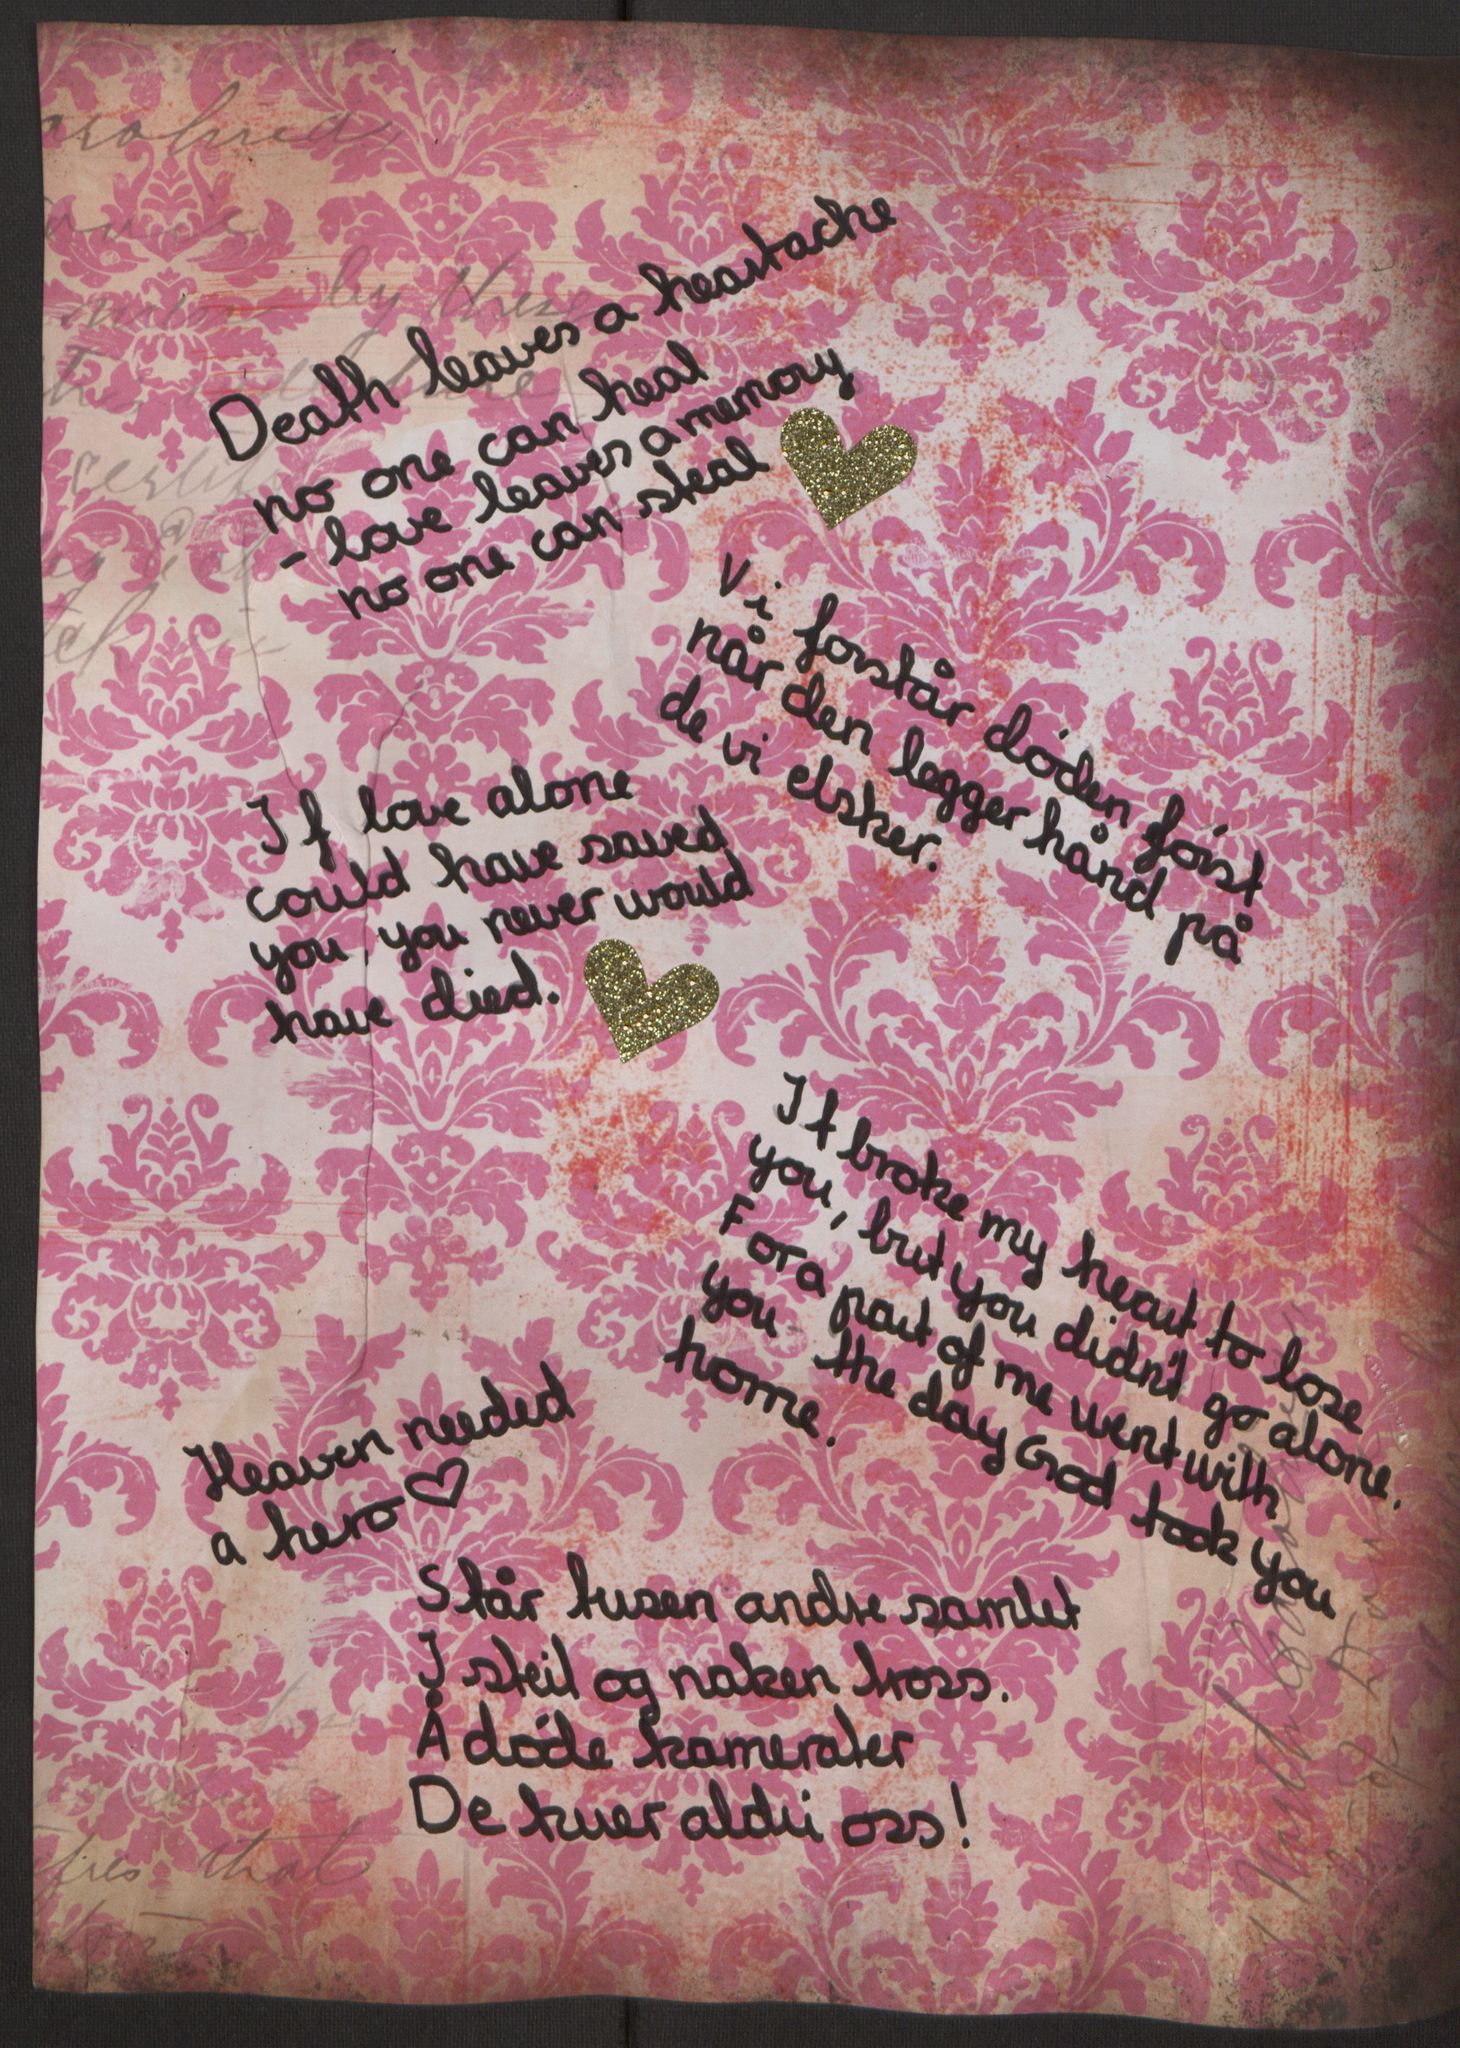 Death leaves a heartache
no one can heal
- love leaves a memory
no one can steal
Vi forstår døden først
når den legger hånd på
de vi elsker.
If love alone
could have saved
you, you never would
have died.
It broke my heart to lose
you, but you didn't go alone.
For a part of me went with
you - the day God took you
home.
Heaven needed
a hero ♡
Står tusen andre samlet
I steil og naken tross.
Å døde kamerater
De kuer aldri oss!
by these
that